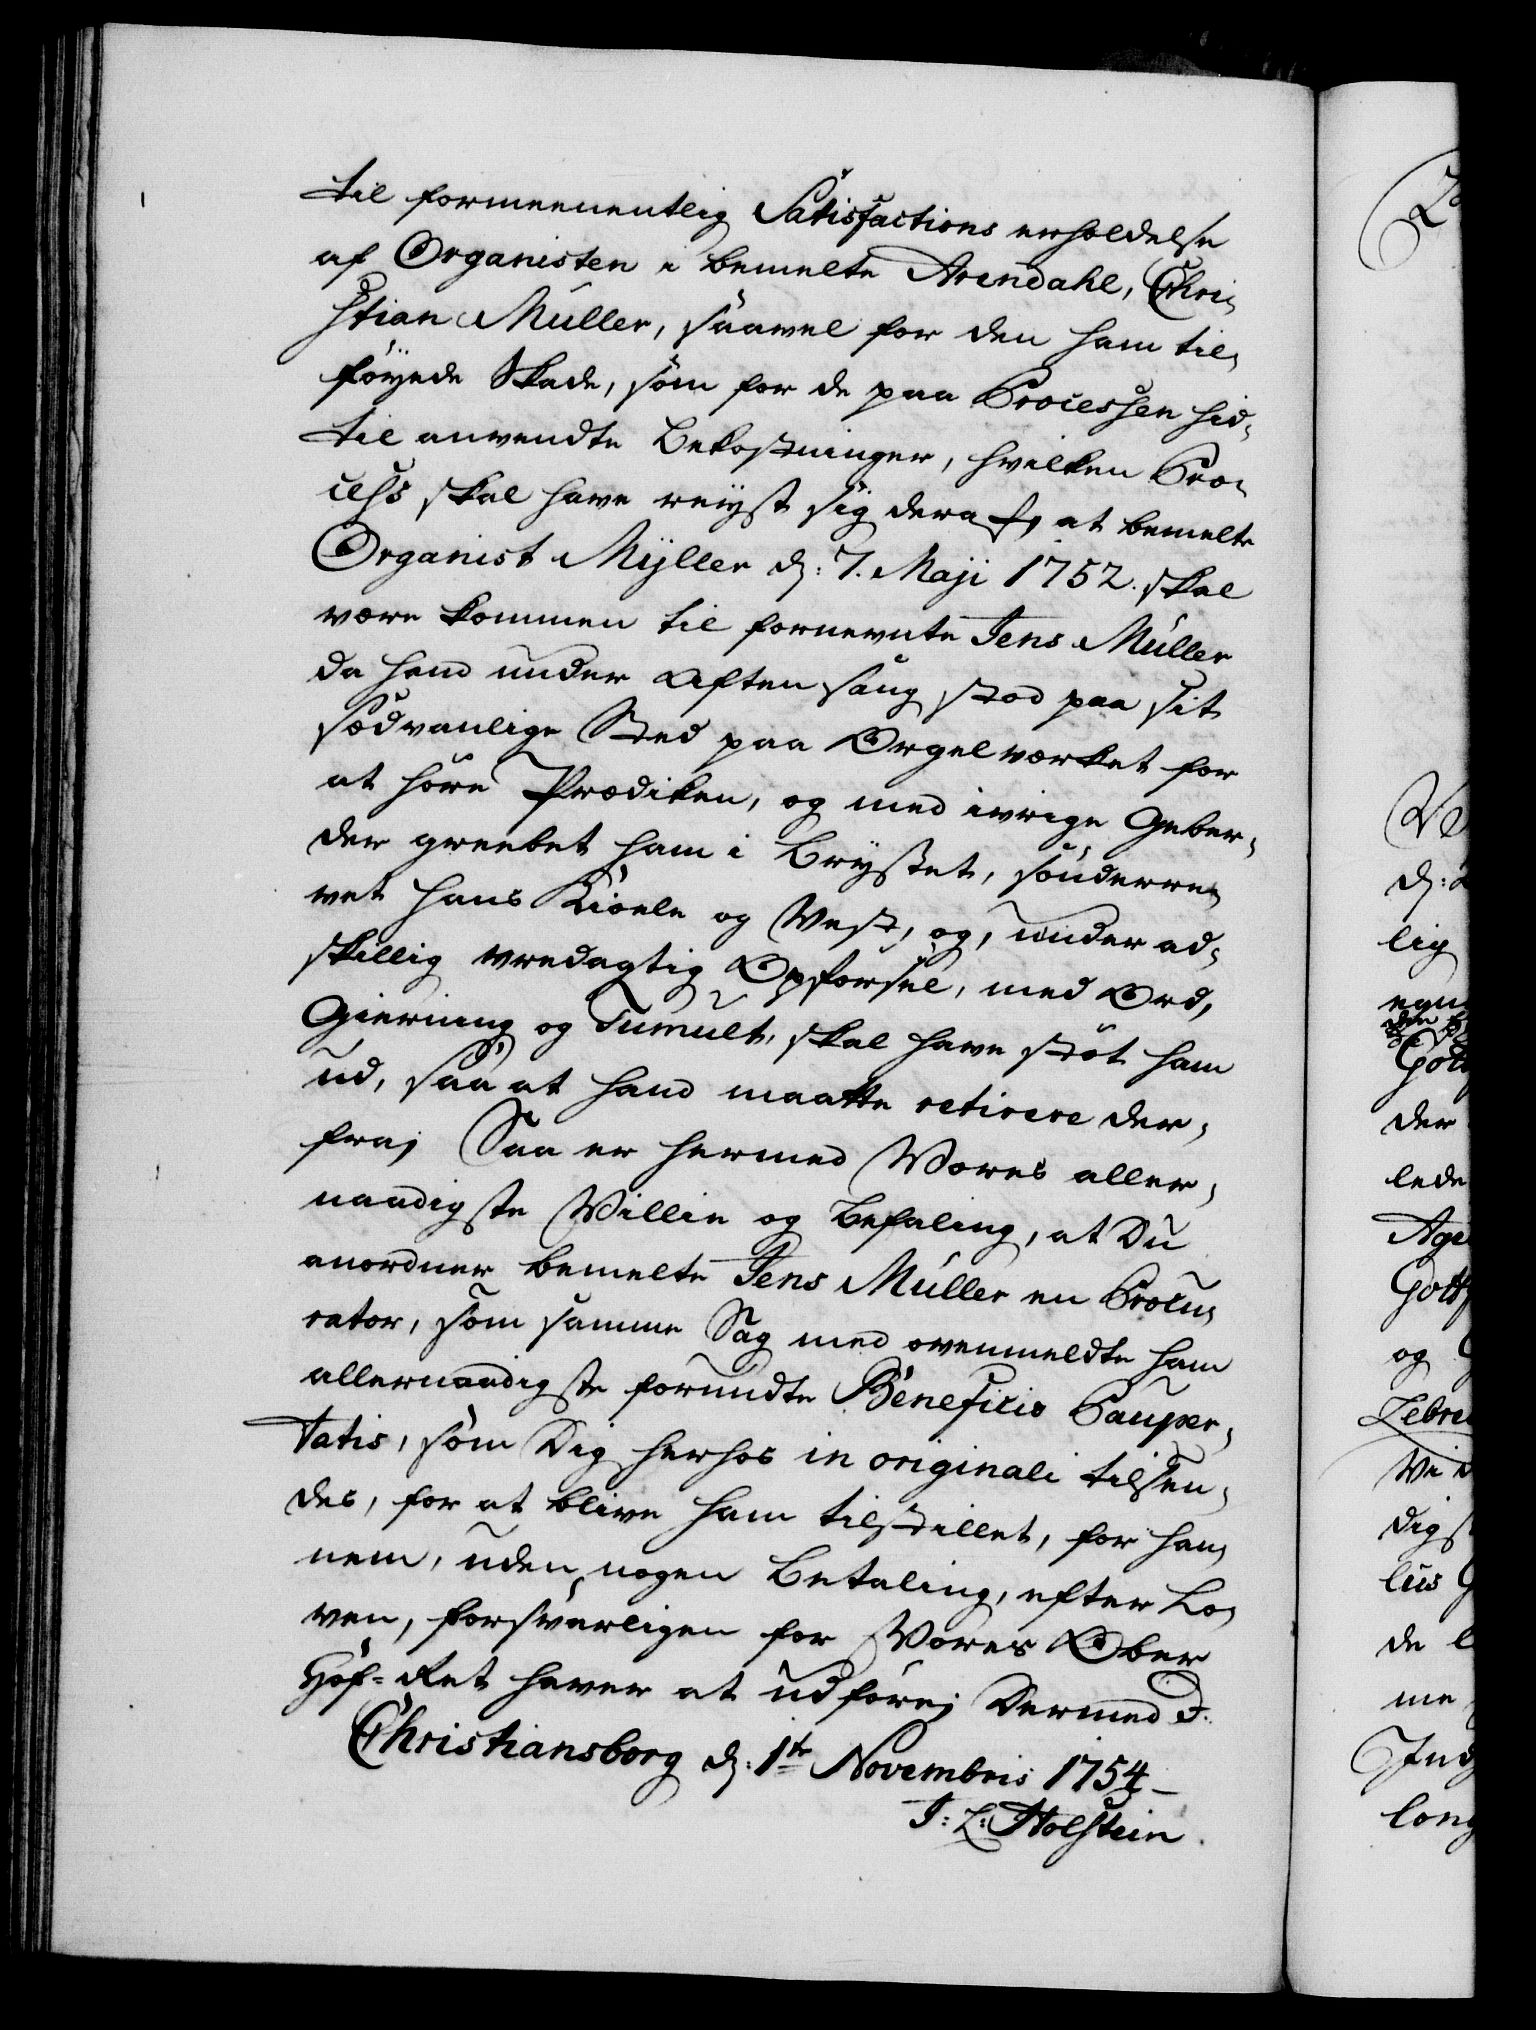 til formeenentlig Satisfactions erholdelse
af Organisten i bemelte Arendahl, Chri¬
stian Müller, saavel for den ham til¬
føyede Skade, som for de paa Processen hid¬
til anvendte Bekostninger, hvilken Pro¬
cess skal have reyst sig deraf, at bemelte
Organist Mÿller d: 7. Maji 1752. skal
være kommen til fornevnte Jens Müller
da hand under Aftensang stod paa sit
sædvanlige Sted paa Orgelværket for
at høre Prædiken, og med ivrige Geber¬
der greebet ham i Brystet, sønderre¬
vet hans Kiole og Vest, og, under ad¬
skillig vredagtig Opførsel, med Ord,
Gierning og Tumult, skal have støt ham
ud, saa at hand maatte retirere der¬
fra; Saa er hermed Vores aller¬
naadigste Villie og Befaling, at Du
anordner bemelte Jens Müller en Procu¬
rator, som samme Sag med ovenmeldte ham
allernaadigste forundte Beneficio Pauper¬
tatis, som Dig herhos in originali tilsen¬
des, for at blive ham tilstillet, for han¬
nem, uden nogen Betaling, efter Lo¬
ven, forsvarligen for Vores Ober
Hof-Ret haver at udføre; Dermed p.
Christiansborg d: 1te Novembris 1754
J: L: Holstein.
d:
lig
der
lede
og
Vi
de
me